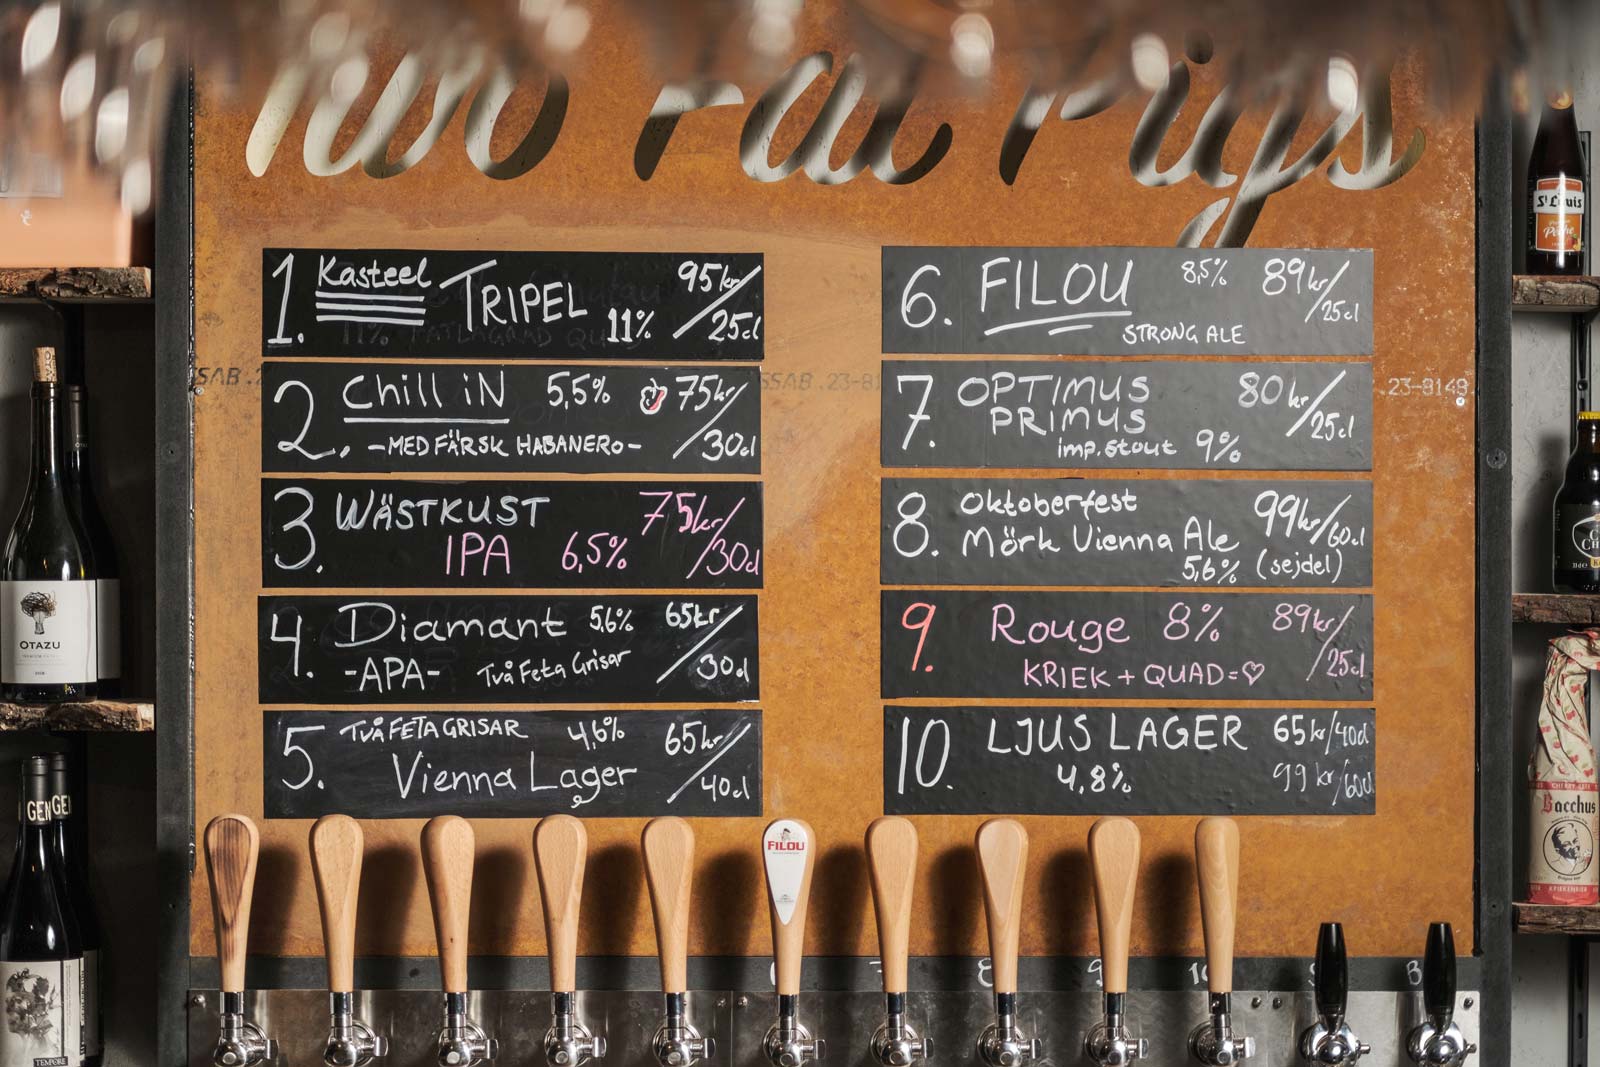 Two Fat Pigs
1. Kasteel TRIPEL 11% 95kr/25cl
2. Chill iN 5,5% 75kr/30cl
-MED FÄRSK HABANERO-
3. WÄSTKUST 75kr/30cl
IPA 6,5%
4. Diamant 5,6% 65kr/30cl
-APA- Två Feta Grisar
5. TVÅ FETA GRISAR 4,6% 65kr/40cl
Vienna Lager
6. FILOU 8,5% 89kr/25cl
STRONG ALE
7. OPTIMUS 80kr/25cl
PRIMUS
imp.stout 9%
8. Oktoberfest 99kr/60cl
Mörk Vienna Ale
5,6% (sejdel)
9. Rouge 8% 89kr/25cl
KRIEK + QUAD=♡
10. LJUS LAGER 65kr/40cl
4,8% 99 kr/60cl
SSAB.23-81
.23-8148
FILOU
8
9
OTAZU
GEN
TEMPORE
St Louis
Pêche
Bacchus
KRIEKENBIER